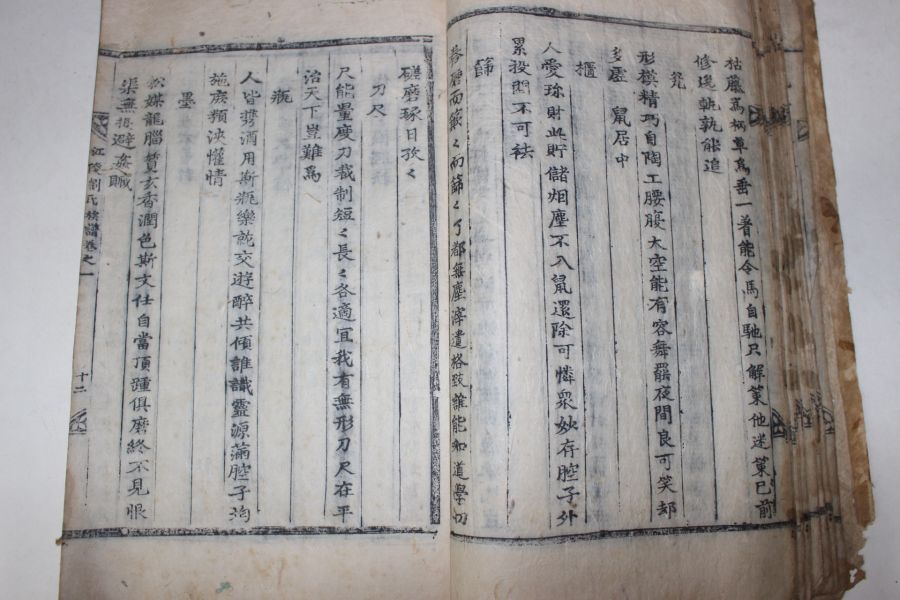 枯藤爲柄草爲垂一着能令馬自馳只解策他迷策已前
修邊執孰能追
形樣精巧自陶工腰腹太空能有容舞罷夜間良可笑却
多塵鼠居中
櫃
人愛珍財此貯儲烟塵不入鼠還除可憐衆妙存腔子外
累投間不可祛
篩
舂磨而簸〻而篩〻了都無塵滓遺格致誰能知道學切
磋磨琢日孜〻
刀尺
尺能量度刀裁制短〻長〻各適宜我有無形刀尺在平
治天下豈難爲
瓶
人皆携酒用斯瓶樂就交遊醉共傾誰識靈源滿腔子
類泱懽情
墨
松媒龍腦質玄香潤色斯文任自當頂踵俱磨終不見恨
渠無想避姦贓
江陵劉氏族譜卷之一
十二